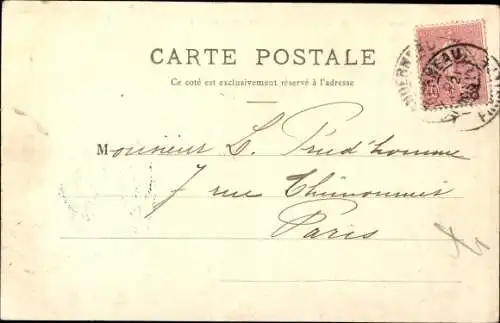 CARTE POSTALE
Ce côté est exclusivement réservé à l'adresse
Monsieur L. Prud'homme
7 rue Thimonnier
Paris